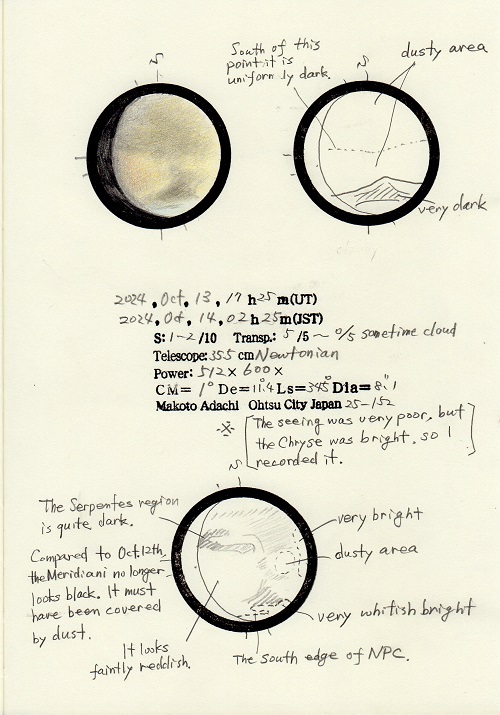 South of this
point it is
uniformly dark.
dusty area
S
S
very dark
2024, Oct, 13, 17 h 25 m (UT)
2024, Oct, 14, 02 h 25 m (JST)
S: 1-2 /10 Transp.: 5 /5 ~ 0/5 sometime cloud
Telescope: 355 cm Newtonian
Power: 512× 600×
CM= 1° De= 11.4° Ls= 345° Dia= 8.1"
Makoto Adachi Ohtsu City Japan 25-152
※ [The seeing was very poor, but
the Chryse was bright, so I
recorded it.]
S
The Serpentes region
is quite dark.
very bright
dusty area
Compared to Oct.12th,
the Meridiani no longer
looks black. It must
have been covered
by dust.
very whitish bright
It looks
faintly reddish.
The south edge of NPC.